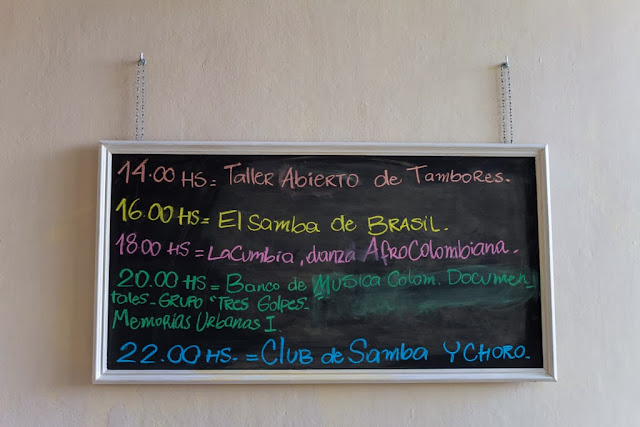 14.00 HS= Taller Abierto de Tambores.
16.00 HS= El Samba de BRASIL.
18.00 HS= LaCumbia, danza AfroColombiana.
20.00 HS= Banco de Musica Colom. Documen-
tales- GRUPO "TRES GOLPES-"
Memorias Urbanas I.
22.00 HS- = Club de Samba Y CHORO-